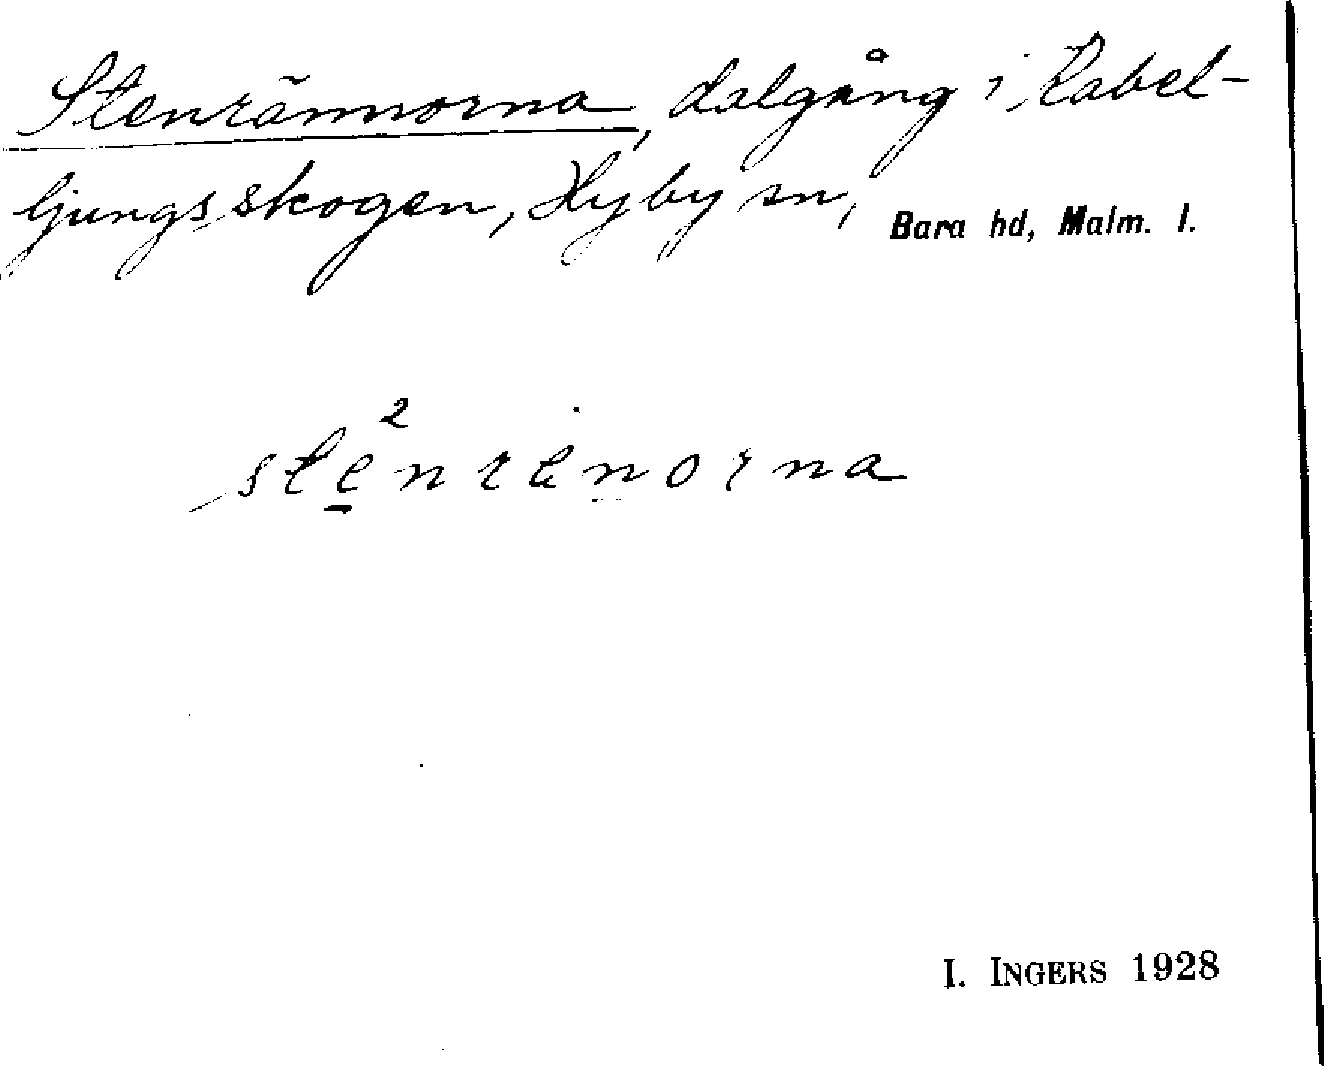 Stenrännorna, dalgång i Kabel-
ljungsskogen, Hyby sn, Bara hd, Malm. l.
2
stenränorna
I. INGERS 1928